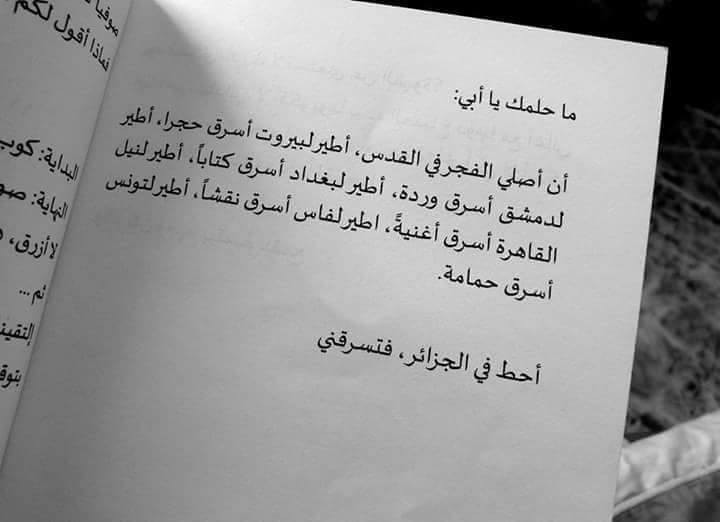 ما حلمك يا أبي:
أن أصلي الفجر في القدس، أطير لبيروت أسرق حجرا، أطير
لدمشق أسرق وردة، أطير لبغداد أسرق كتاباً، أطير لنيل
القاهرة أسرق أغنيةً، اطير لفاس أسرق نقشاً، أطير لتونس
أسرق حمامة.
أحط في الجزائر، فتسرقني
صوفيا
فماذا أقول لكم
البداية: كوب
النهاية: صو
لا أزرق،
ثم ...
إلتقين
بتوق